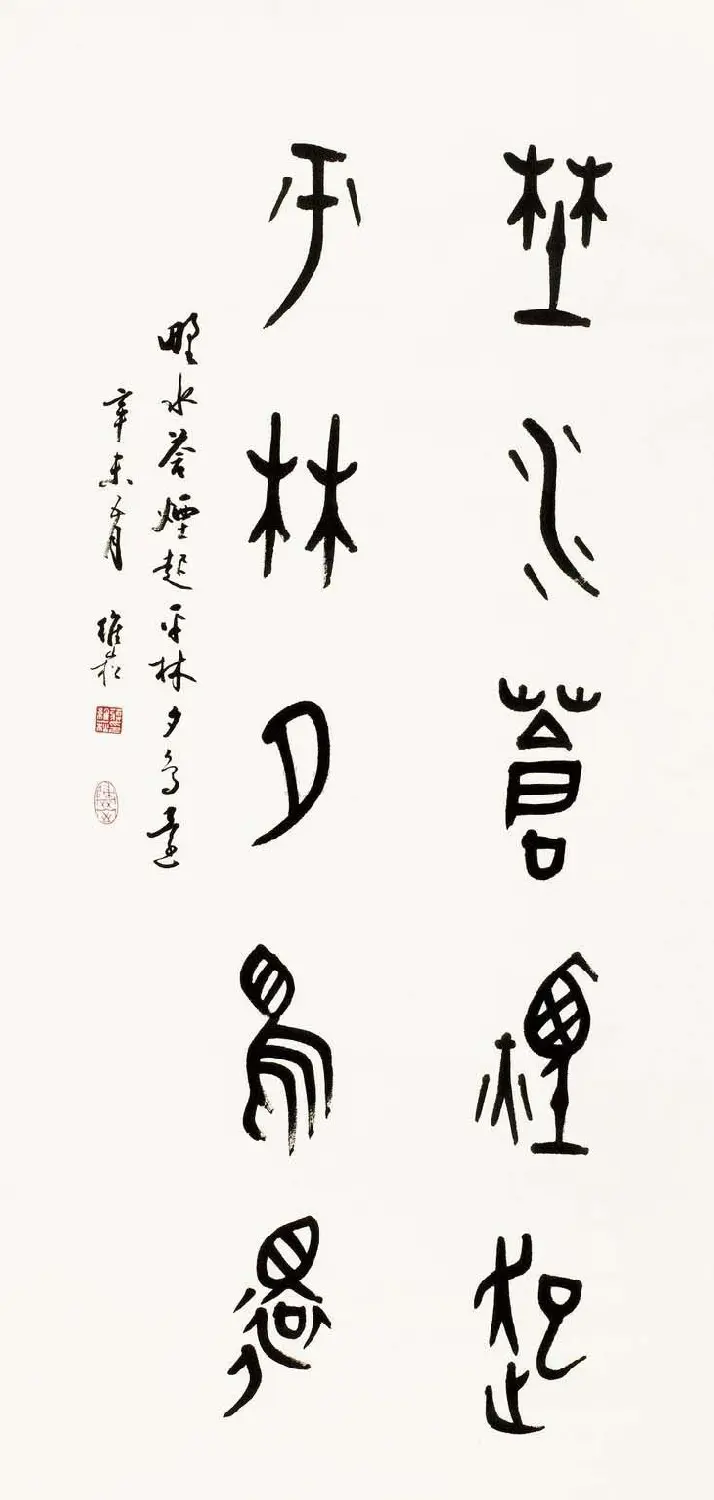 埜水蒼煙起
平林夕鳥還
野水蒼煙起平林夕鳥還
辛未五月 維崧